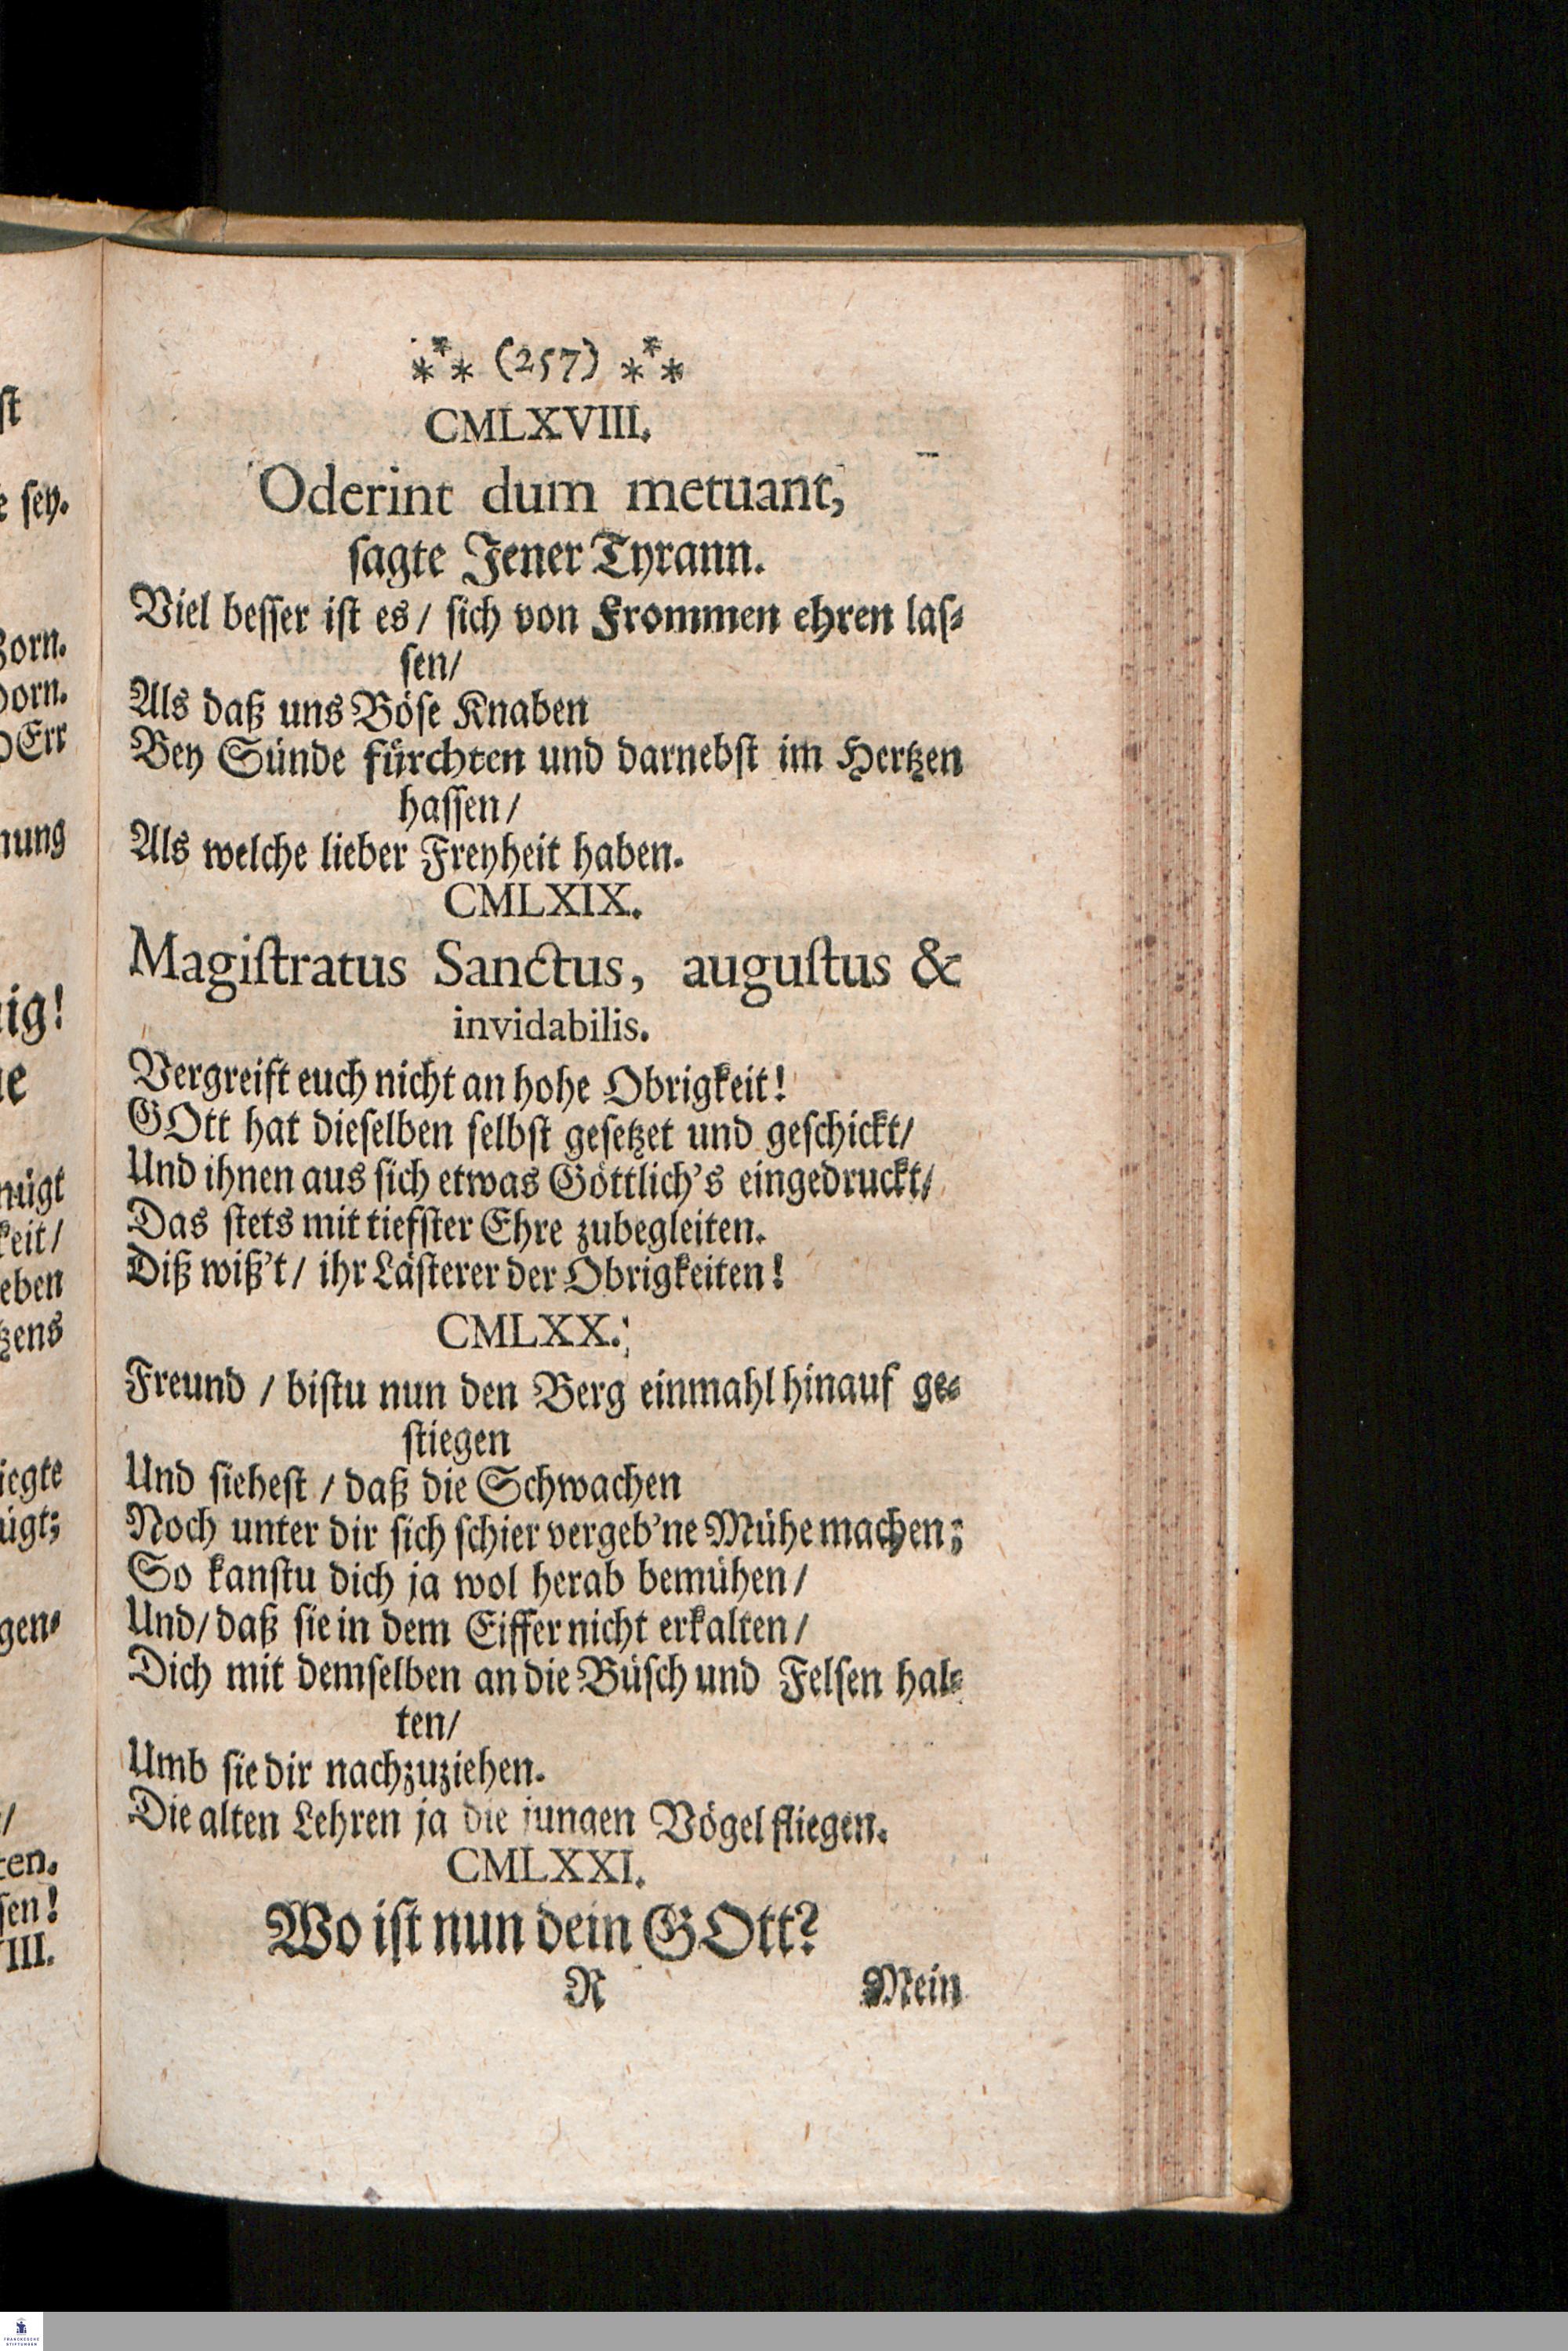 ⁂ (257) ⁂
CMLXVIII.
Oderint dum metuant,
sagte Jener Tyrann.
Viel besser ist es / sich von Frommen ehren las-
sen/
Als daß uns Böse Knaben
Bey Sünde fürchten und darnebst im Hertzen
hassen/
Als welche lieber Freyheit haben.
CMLXIX.
Magistratus Sanctus, augustus &
invidabilis.
Vergreift euch nicht an hohe Obrigkeit!
GOtt hat dieselben selbst gesetzet und geschickt/
Und ihnen aus sich etwas Göttlich's eingedruckt/
Das stets mit tiefster Ehre zubegleiten.
Diß wiß't / ihr Lästerer der Obrigkeiten!
CMLXX.
Freund / bistu nun den Berg einmahl hinauf ge-
stiegen
Und siehest / daß die Schwachen
Noch unter dir sich schier vergeb'ne Mühe machen;
So kanstu dich ja wol herab bemühen /
Und / daß sie in dem Eiffer nicht erkalten /
Dich mit demselben an die Büsch und Felsen hal-
ten/
Umb sie dir nachzuziehen.
Die alten Lehren ja die jungen Vögel fliegen.
CMLXXI.
Wo ist nun dein GOtt?
R Mein